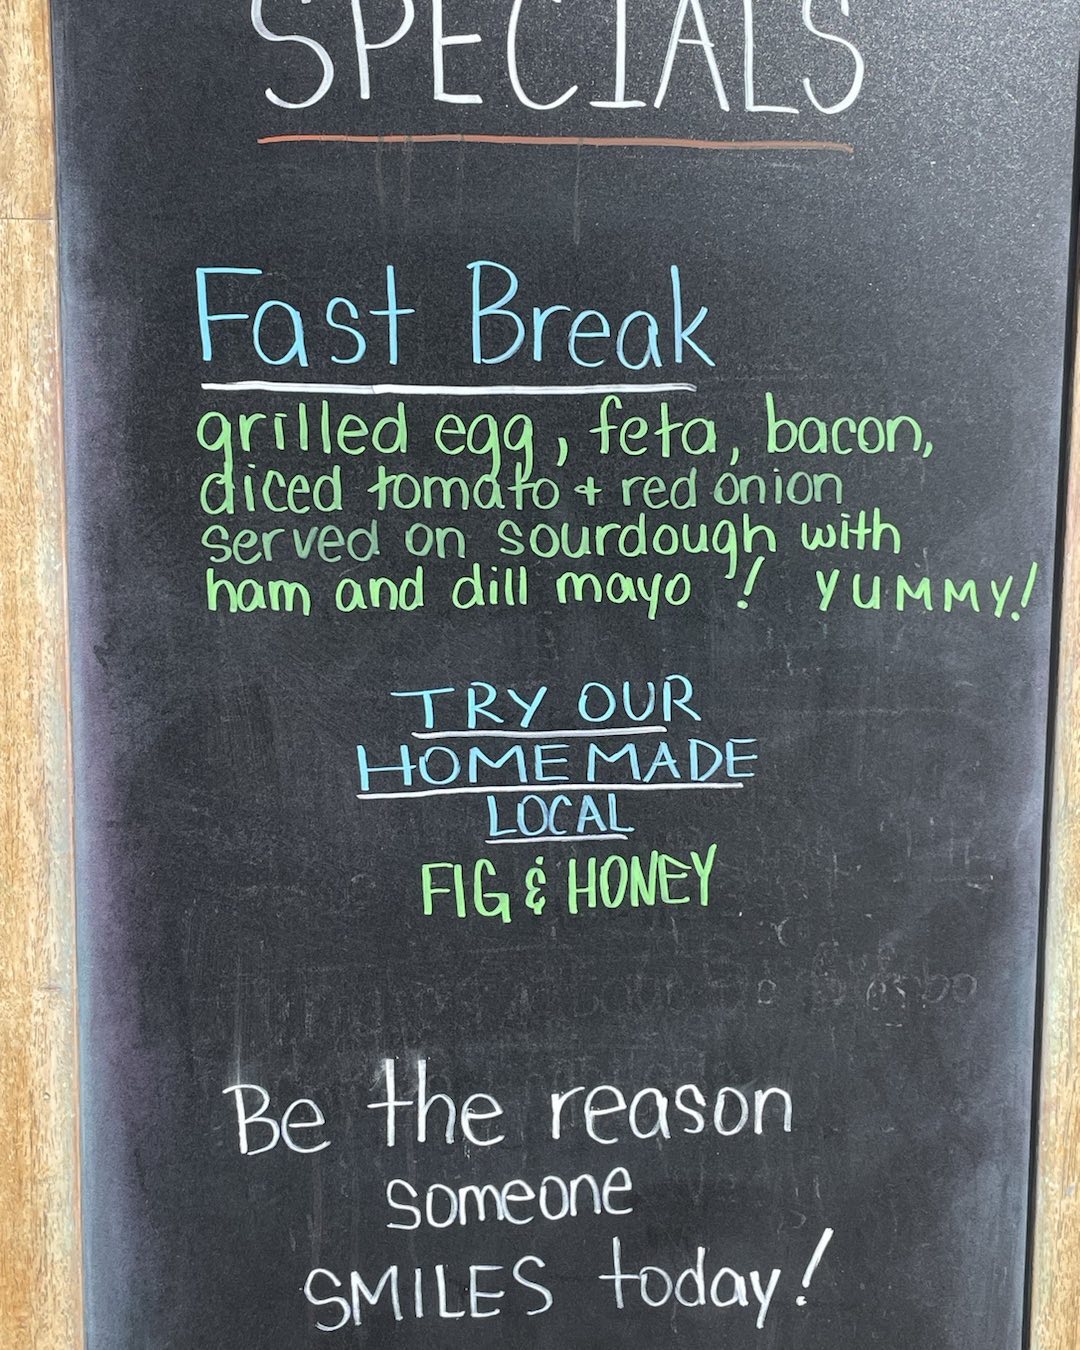 SPECIALS
Fast Break
grilled egg, feta, bacon,
diced tomato + red onion
served on sourdough with
ham and dill mayo ! YUMMY!
TRY OUR
HOMEMADE
LOCAL
FIG & HONEY
Be the reason
someone
SMILES today!